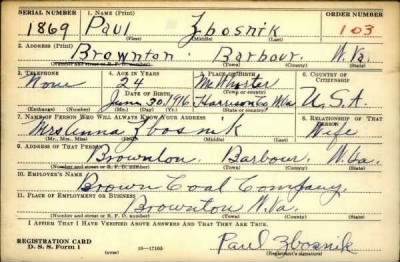 SERIAL NUMBER 1. NAME (Print) ORDER NUMBER
1869 Paul Zbosnik 103
(First) (Middle) (Last)
2. ADDRESS (Print)
Brownton Barbour W. Va.
(Number and street or R. F. D. number) (Town) (County) (State)
3. TELEPHONE 4. AGE IN YEARS 5. PLACE OF BIRTH 6. COUNTRY OF CITIZENSHIP
None 24 McWhorter
DATE OF BIRTH (Town or county)
June 30 1916 Harrison Co U.S.A.
(Exchange) (Number) (Mo.) (Day) (Yr.) (State or country)
7. NAME OF PERSON WHO WILL ALWAYS KNOW YOUR ADDRESS 8. RELATIONSHIP OF THAT PERSON
Mrs Anna Zbosnik Wife
(Mr., Mrs., Miss) (First) (Middle) (Last)
9. ADDRESS OF THAT PERSON
Brownton Barbour W. Va.
(Number and street or R. F. D. number) (Town) (County) (State)
10. EMPLOYER'S NAME
Brown Coal Company
11. PLACE OF EMPLOYMENT OR BUSINESS
Brownton W. Va.
(Number and street or R. F. D. number) (Town) (County) (State)
I AFFIRM THAT I HAVE VERIFIED ABOVE ANSWERS AND THAT THEY ARE TRUE.
REGISTRATION CARD
D. S. S. FORM 1 (over) 16—17105 Paul Zbosnik
(Registrant's signature)